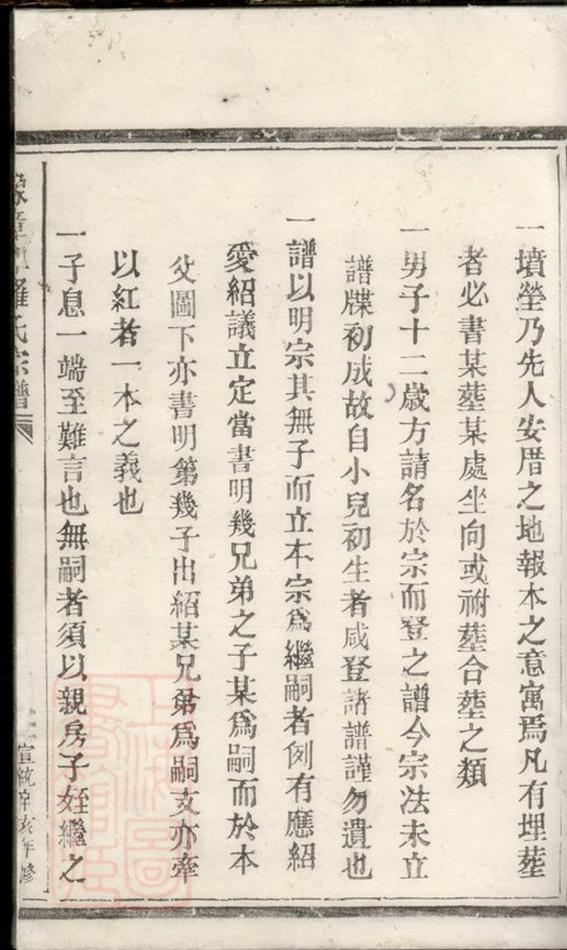 一墳塋乃先人安厝之地報本之意寓焉凡有埋塟
者必書某塟某處坐向或祔塟合塟之類
一男子十二歲方請名於宗而登之譜今宗法未立
譜牒初成故自小兒初生者咸登諸譜謹勿遺也
一譜以明宗其無子而立本宗爲繼嗣者例有應紹
愛紹議立定當書明幾兄弟之子某爲嗣而於本
父圖下亦書明第幾子出紹某兄弟爲嗣支亦牽
以紅者一本之義也
一子息一端至難言也無嗣者須以親房子姪繼之
豫章羅氏宗譜
宣統辛亥年修
上海圖書館藏